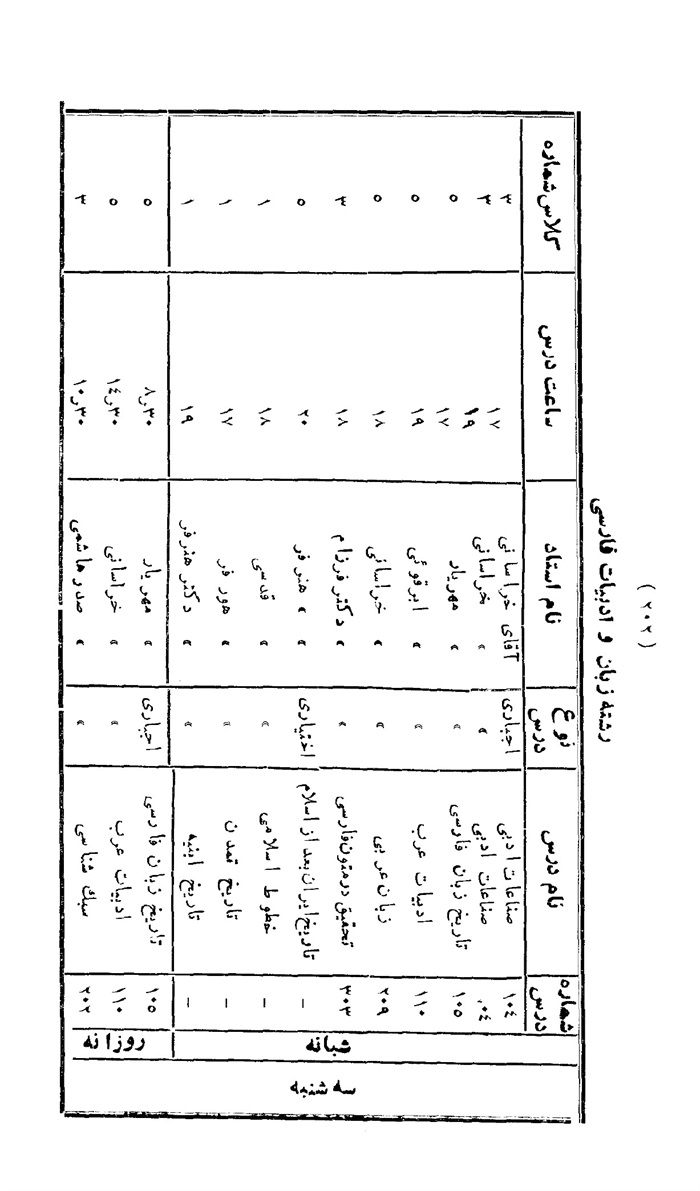 ( ٢٠٢ )
رشته زبان و ادبیات فارسی
شماره درس نام درس نوع درس نام استاد ساعت درس کلاس شماره
سه شنبه
شبانه
١٠٤ صناعات ادبی اجباری آقای خراسانی ١٧ ٣
٠٤ صناعات ادبی » » خراسانی ١٩ ٣
١٠٥ تاریخ زبان فارسی » » مهریار ١٧ ٥
١١٠ ادبیات عرب » » ابرقوئی ١٩ ٥
٢٠٩ زبان عربی » » خراسانی ١٨ ٥
٣٠٣ تحقیق در متون فارسی » » دکتر فرزام ١٨ ٣
– تاریخ ایران بعد از اسلام اختیاری » » هنرفر ٢٠ ٥
– خطوط اسلامی » » قدسی ١٨ ١
– تاریخ تمدن » » هورفر ١٧ ١
– تاریخ ابنیه » » دکتر هنرفر ١٩ ١
روزانه
١٠٥ تاریخ زبان فارسی اجباری » مهریار ٨٫٣٠ ٥
١١٠ ادبیات عرب » » خراسانی ١٤٫٣٠ ٥
٢٠٢ سبک شناسی » » صدرهاشمی ١٠٫٣٠ ٣